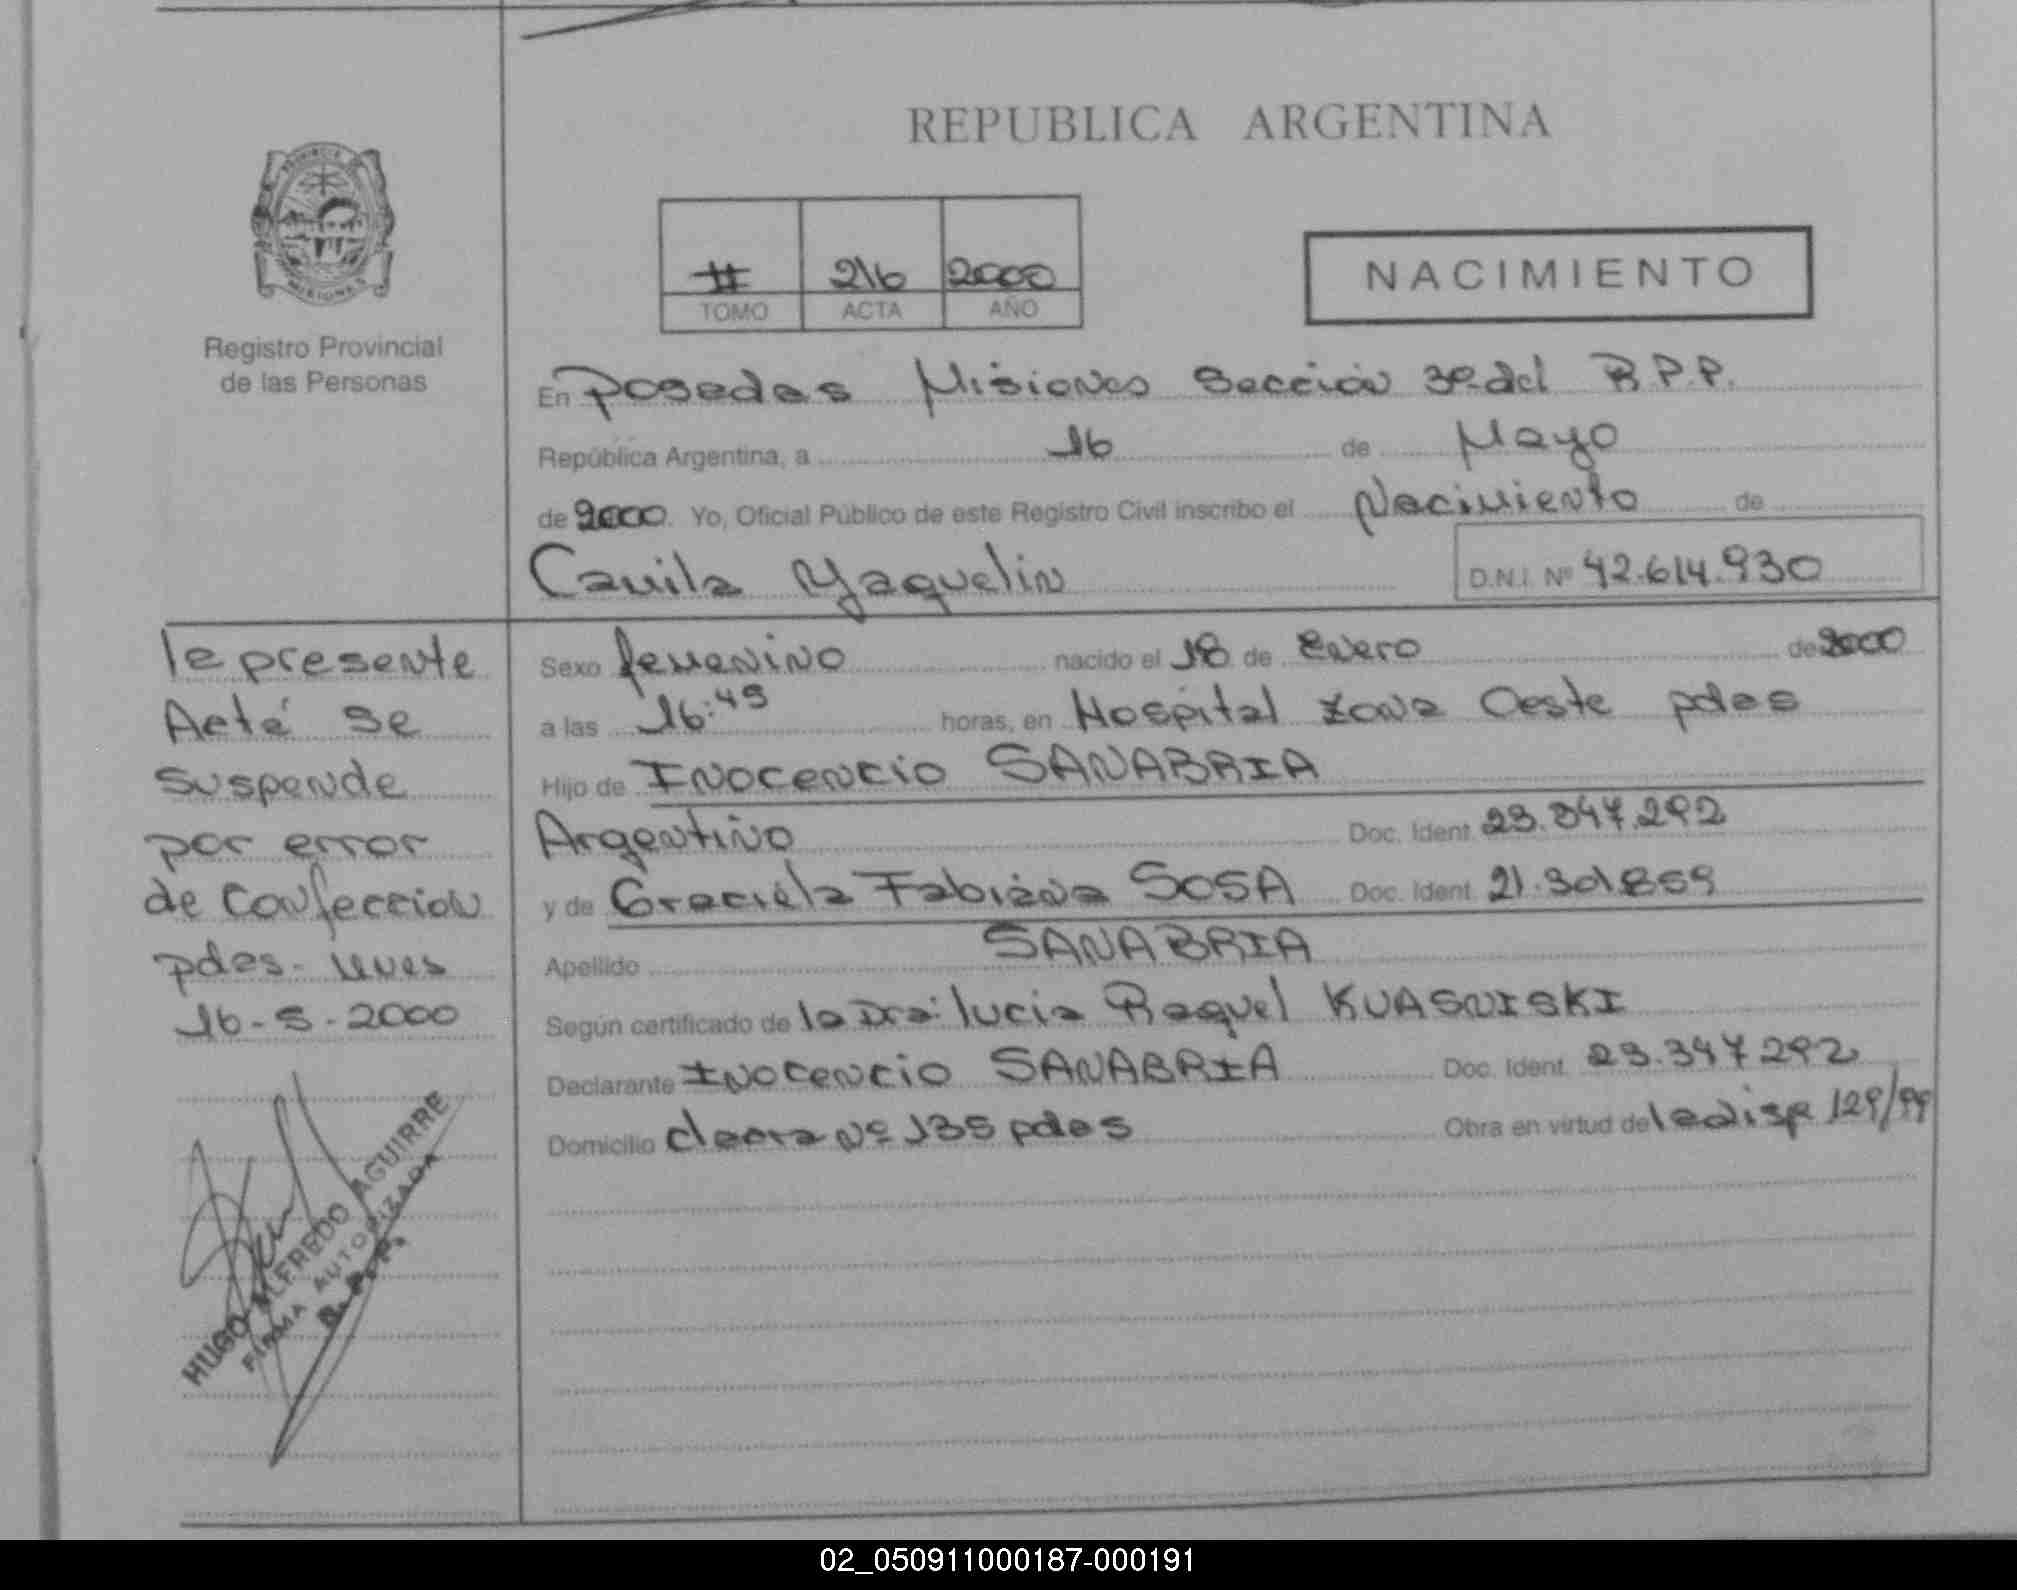 REPUBLICA ARGENTINA
PROVINCIA DE
MISIONES
Registro Provincial
de las Personas
II 216 2000
TOMO ACTA AÑO
NACIMIENTO
En Posadas Misiones Sección 3º del R.P.P.
República Argentina, a 16 de Mayo
de 2000. Yo, Oficial Público de este Registro Civil inscribo el Nacimiento de
Camila Yaquelin D.N.I. Nº 42.614.930
Sexo femenino nacido el 18 de Enero de 2000
a las 16:45 horas, en Hospital Zona Oeste pdas
Hijo de Inocencio SANABRIA
Argentino Doc. Ident. 23.347.292
y de Graciela Fabiana SOSA Doc. Ident. 21.301.859
Apellido SANABRIA
Según certificado de la Dra: lucia Raquel KUASNISKI
Declarante Inocencio SANABRIA Doc. Ident. 23.347.292
Domicilio chacra Nº 135 pdas Obra en virtud de la disp 129/99
la presente
Acta se
suspende
por error
de Confeccion
pdas. Mnes
16-5-2000
HUGO ALFREDO AGUIRRE
FIRMA AUTORIZADA
R.P.P.
02_050911000187-000191